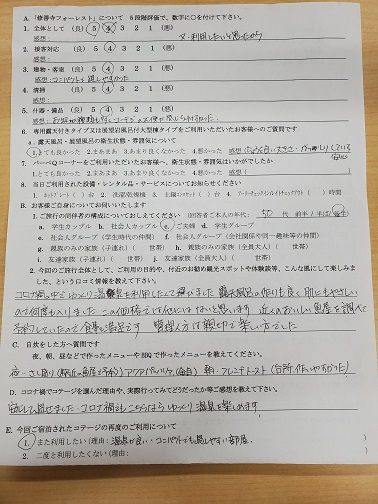 A.「修善寺フォーレスト」について 5段階評価で、数字に○を付けて下さい。
1. 全体として (良) 5 4 3 2 1 (悪)
感想: 又利用したいと思ったから
2. 接客対応 (良) 5 4 3 2 1 (悪)
感想:
3. 建物・客室 (良) 5 4 3 2 1 (悪)
感想: コンパクトで過しやすかった
4. 清掃 (良) 5 4 3 2 1 (悪)
感想:
5. 什器・備品 (良) 5 4 3 2 1 (悪)
感想:
6. 専用露天付きタイプ又は展望岩風呂付大型棟タイプをご利用いただいたお客様へのご質問です
a. 露天風呂・展望風呂の衛生状態・雰囲気について
1.とても良かった 2.まあまあ 3.あまり良くなかった 4.悪かった 感想
7. バーベQコーナーをご利用いただいたお客様へ、衛生状態・雰囲気はいかがでしたか
1.とても良かった 2.まあまあ 3.あまり良くなかった 4.悪かった 感想(
8. 当日ご利用された設備・レンタル品・サービスについてお知らせください
B. お客様ご自身についてお伺いいたします
1.ご旅行の同伴者の構成についておしえてください (回答者ご本人の年代: 50 代 前半/半ば/後半)
a. 学生カップル b. 社会人カップル c. ご夫婦 d. 学生グループ
e. 社会人グループ(学生時代の仲間) f. 社会人グループ(会社関係や同一趣味等の仲間)
g. 親族のみの家族(子連れ)( 世帯) h. 親族のみの家族(全員大人)( 世帯)
i. 友達家族(子連れ)( 世帯) j. 友達家族(全員大人)( 世帯)
2. 今回のご旅行全体として、ご利用の目的や、付近のお勧め観光スポットや体験談等、こんな風にして楽しみま
した、という口コミ情報を教えて下さい。
コロナ禍の中でゆっくり温泉を利用したくて選びました 露天風呂の作りも良く肌にもやさしい
ので何度も入りました この価格では他にはないと思います 近くのおいしい魚屋を調べて
予約していたので食事も満足です 管理人さんは親切で楽しい方でした
C. 自炊をした方へ質問です
夜、朝、昼などで作ったメニューやBBQで作ったメニューを教えてください。
夜・さし盛り(近くの魚屋で予約) 朝・フレンチトースト (台所作りやすかった)
D. コロナ禍でコテージを選んだ理由や、実際行ってみてどうだったか等ご感想を教えて下さい。
安心して過せました・コロナ禍でもこちらならゆっくり温泉を楽しめます
E. 今回ご宿泊されたコテージの再度のご利用について
1. また利用したい(理由: 温泉が良い・コンパクトでも過しやすい部屋 )
2. 二度と利用したくない(理由: )